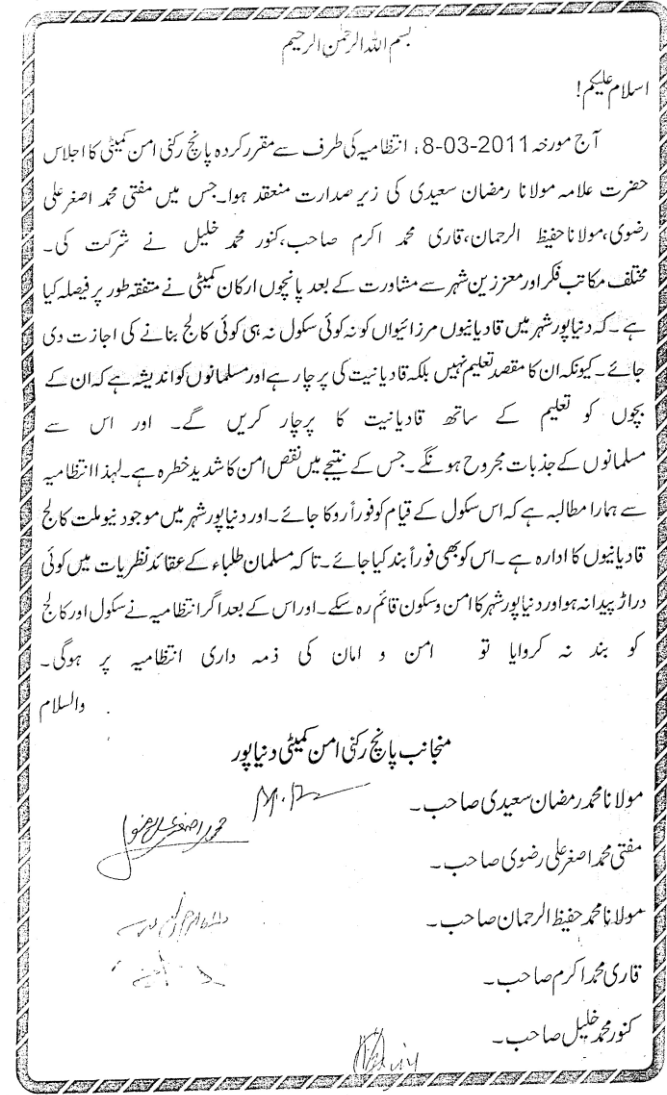 بسم اللہ الرحمٰن الرحیم
اسلام علیکم!
آج مورخہ 2011-03-8، انتظامیہ کی طرف سے مقرر کردہ پانچ رکنی امن کمیٹی کا اجلاس
حضرت علامہ مولانا رمضان سعیدی کی زیر صدارت منعقد ہوا۔ جس میں مفتی محمد اصغر علی
رضوی، مولانا حفیظ الرحمان، قاری محمد اکرم صاحب، کنور محمد خلیل نے شرکت کی۔
مختلف مکاتب فکر اور معززین شہر سے مشاورت کے بعد پانچوں ارکان کمیٹی نے متفقہ طور پر فیصلہ کیا
ہے۔ کہ دنیاپور شہر میں قادیانیوں مرزائیواں کو نہ کوئی سکول نہ ہی کوئی کالج بنانے کی اجازت دی
جائے۔ کیونکہ ان کا مقصد تعلیم نہیں بلکہ قادیانیت کی پرچار ہے اور مسلمانوں کو اندیشہ ہے کہ ان کے
بچوں کو تعلیم کے ساتھ قادیانیت کا پرچار کریں گے۔ اور اس سے
مسلمانوں کے جذبات مجروح ہونگے۔ جس کے نتیجے میں نقص امن کا شدید خطرہ ہے۔ لہذا انتظامیہ
سے ہمارا مطالبہ ہے کہ اس سکول کے قیام کو فوراً روکا جائے۔ اور دنیاپور شہر میں موجود نیو ملت کالج
قادیانیوں کا ادارہ ہے۔ اس کو بھی فوراً بند کیا جائے۔ تاکہ مسلمان طلباء کے عقائد نظریات میں کوئی
دراڑ پیدا نہ ہو اور دنیاپور شہر کا امن و سکون قائم رہ سکے۔ اور اس کے بعد اگر انتظامیہ نے سکول اور کالج
کو بند نہ کروایا تو امن و امان کی ذمہ داری انتظامیہ پر ہوگی۔
والسلام
منجانب پانچ رکنی امن کمیٹی دنیاپور
مولانا محمد رمضان سعیدی صاحب۔
مفتی محمد اصغر علی رضوی صاحب۔
مولانا محمد حفیظ الرحمان صاحب۔
قاری محمد اکرم صاحب۔
کنور محمد خلیل صاحب۔